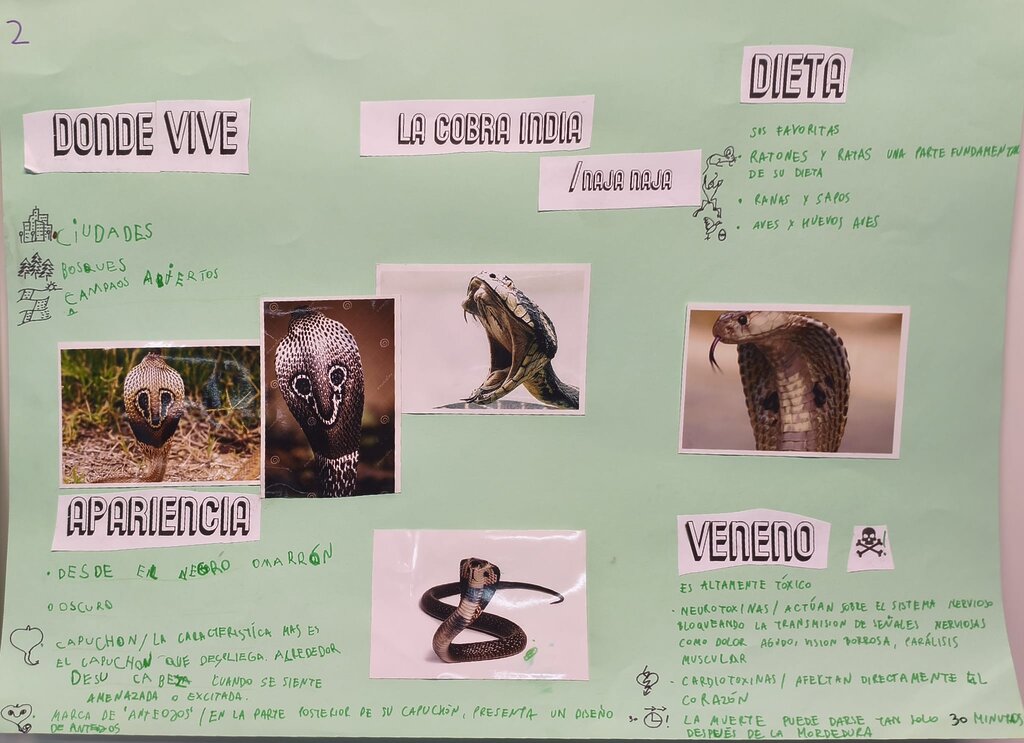 2
DONDE VIVE
CIUDADES
BOSQUES
CAMPAOS ABIERTOS
LA COBRA INDIA
/NAJA NAJA
DIETA
SUS FAVORITAS
• RATONES Y RATAS UNA PARTE FUNDAMENTAL
DE SU DIETA
• RANAS Y SAPOS
• AVES Y HUEVOS AVES
APARIENCIA
• DESDE EL NEGRO OMARRÓN
O OSCURO
CAPUCHON/LA CARACTERISTÍCA MAS ES
EL CAPUCHON QUE DESPLIEGA. ALREDEDOR
DESU CABEZA CUANDO SE SIENTE
AMENAZADA O EXCITADA.
MARCA DE "ANTEOJOS"/EN LA PARTE POSTERIOR DE SU CAPUCHÓN, PRESENTA UN DISEÑO
DE ANTEOJOS
VENENO
ES ALTAMENTE TÓXICO
• NEUROTOXINAS/ACTÚAN SOBRE EL SISTEMA NERVIOSO
BLOQUEANDO LA TRANSMISION DE SEÑALES NERVIOSAS
COMO DOLOR AGUDO, VISION BORROSA, PARÁLISIS
MUSCULAR
• CARDIOTOXINAS/AFECTAN DIRECTAMENTE EL
CORAZÓN
30 ! LA MUERTE PUEDE DARSE TAN SOLO 30 MINUTOS
DESPUÉS DE LA MORDEDURA